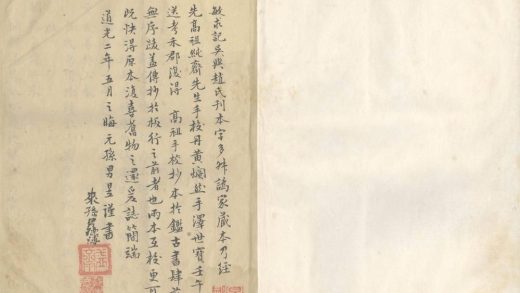 敏求記吳興趙氏刊本字多舛譌家藏本乃經
先高祖紙齋先生手校丹黃爛然手澤世寶壬午
送考禾郡復得 高祖手校抄本於鑑古書肆並
無序跋蓋傳抄於板行之前者也兩本互校更可
既快得原本復喜舊物之還爰誌簡端
道光二年五月之晦元孫男昱謹書